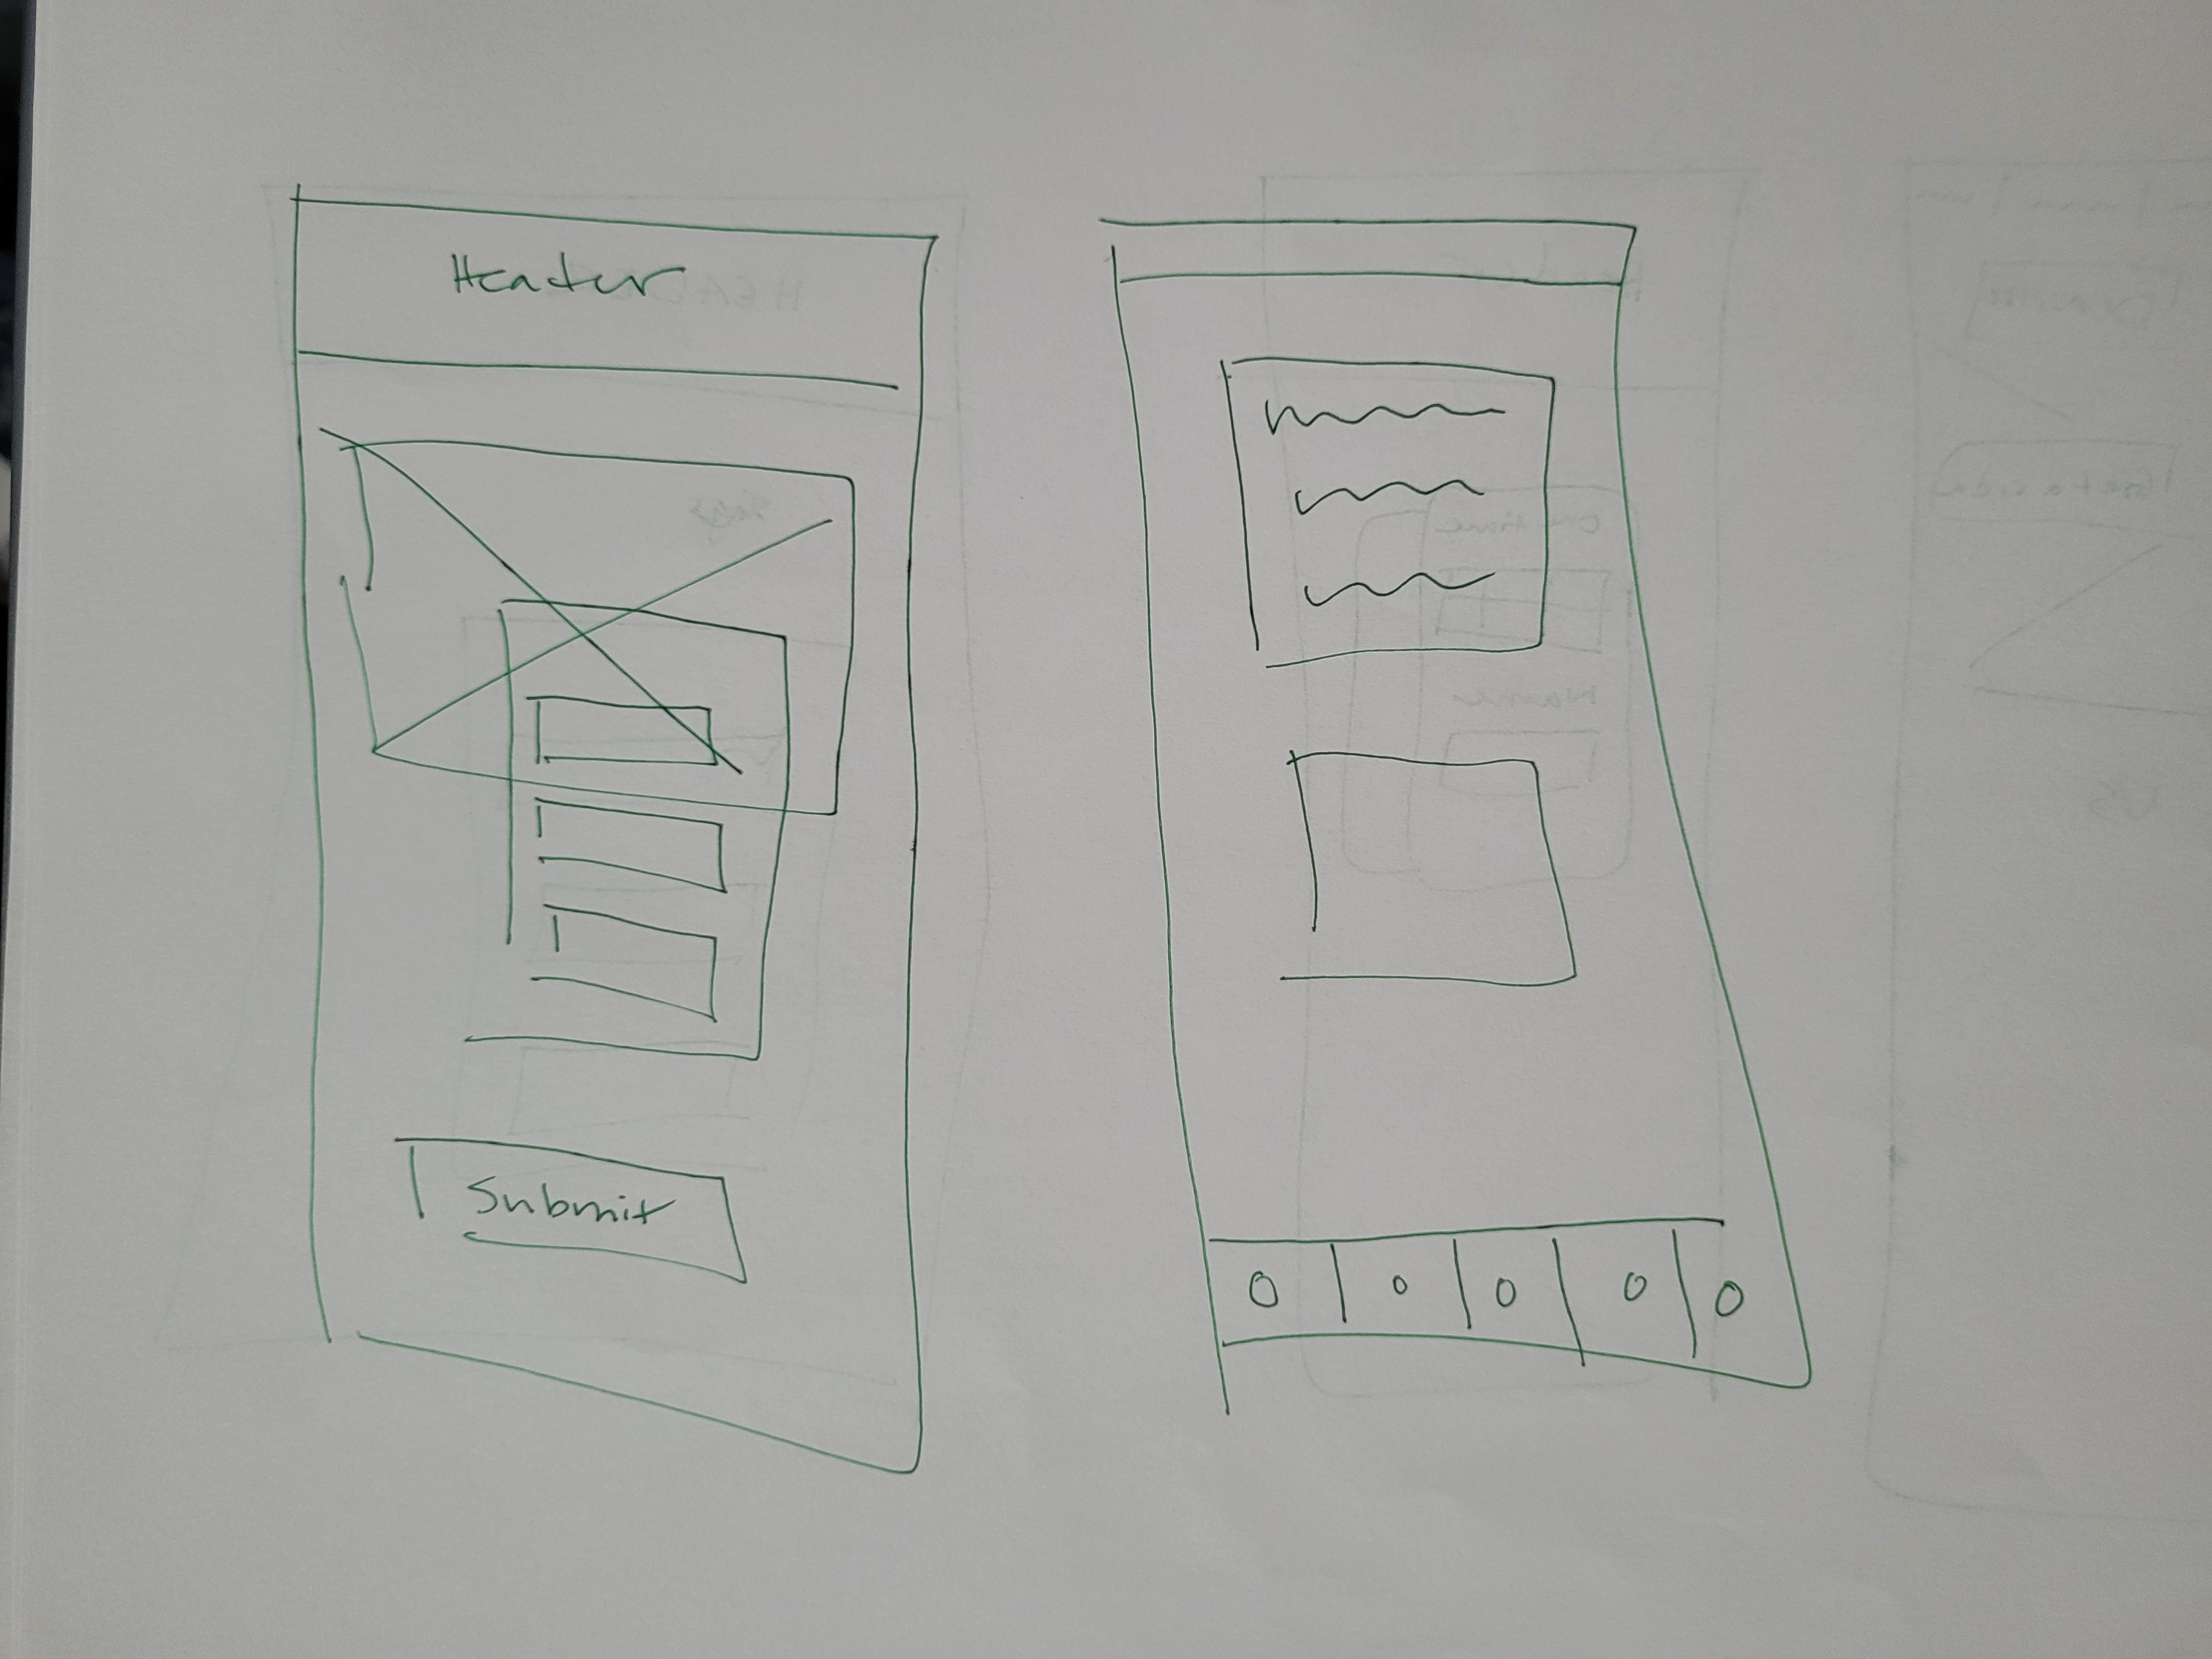 Header
Submit